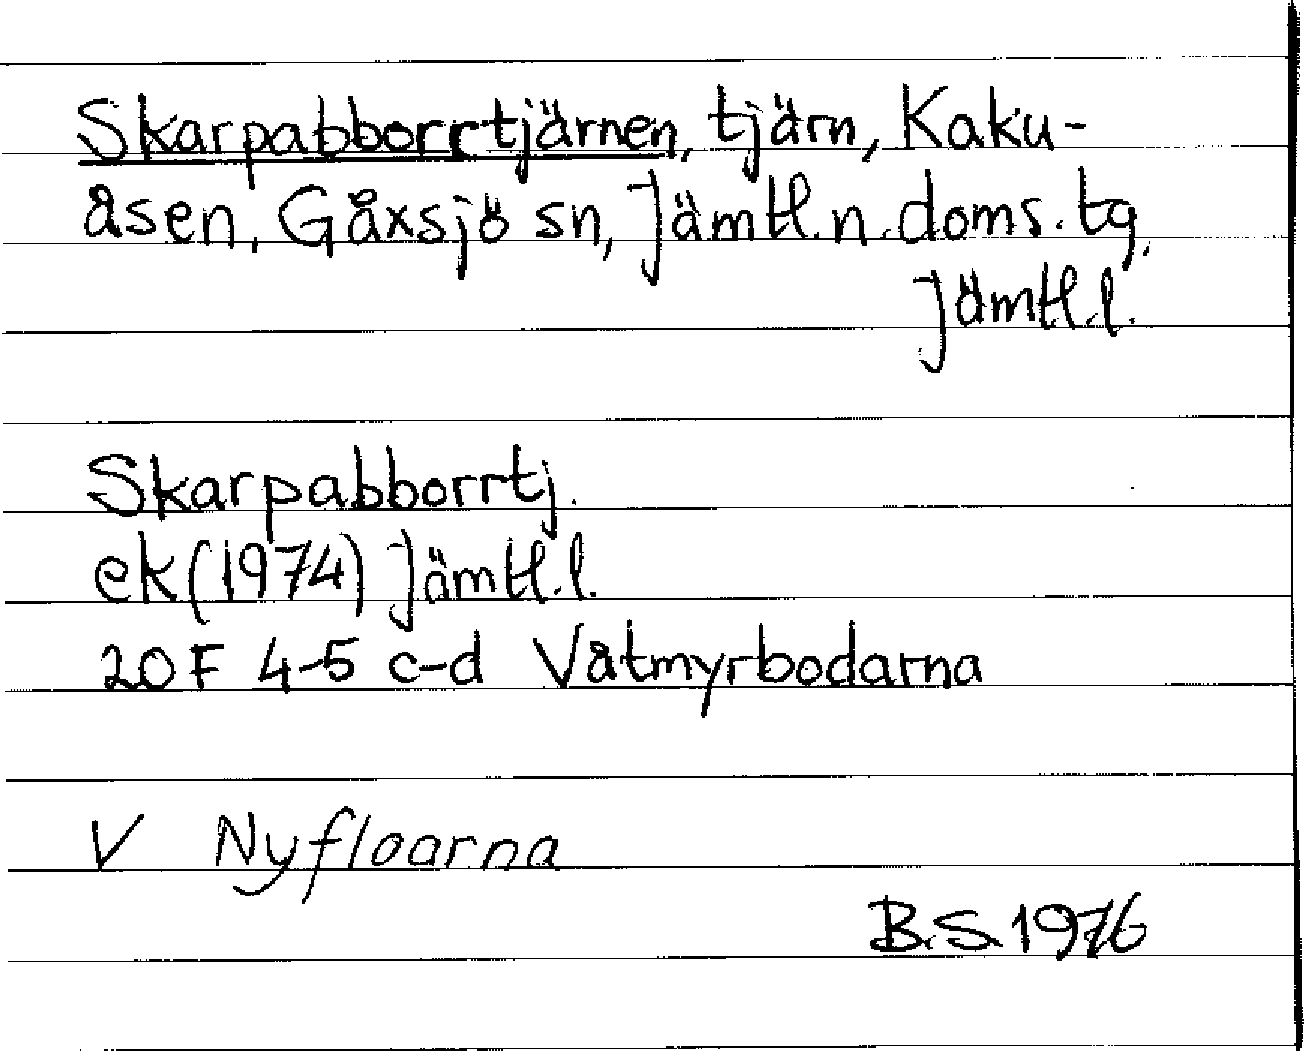 Skarpabborrtjärnen, tjärn, Kaku-
åsen, Gåxsjö sn, Jämtl.n.doms.tg,
Jämtl.l.
Skarpabborrtj.
ek(1974) Jämtl.l.
20F 4-5 c-d Våtmyrbodarna
V Nyfloarna
B.S. 1976